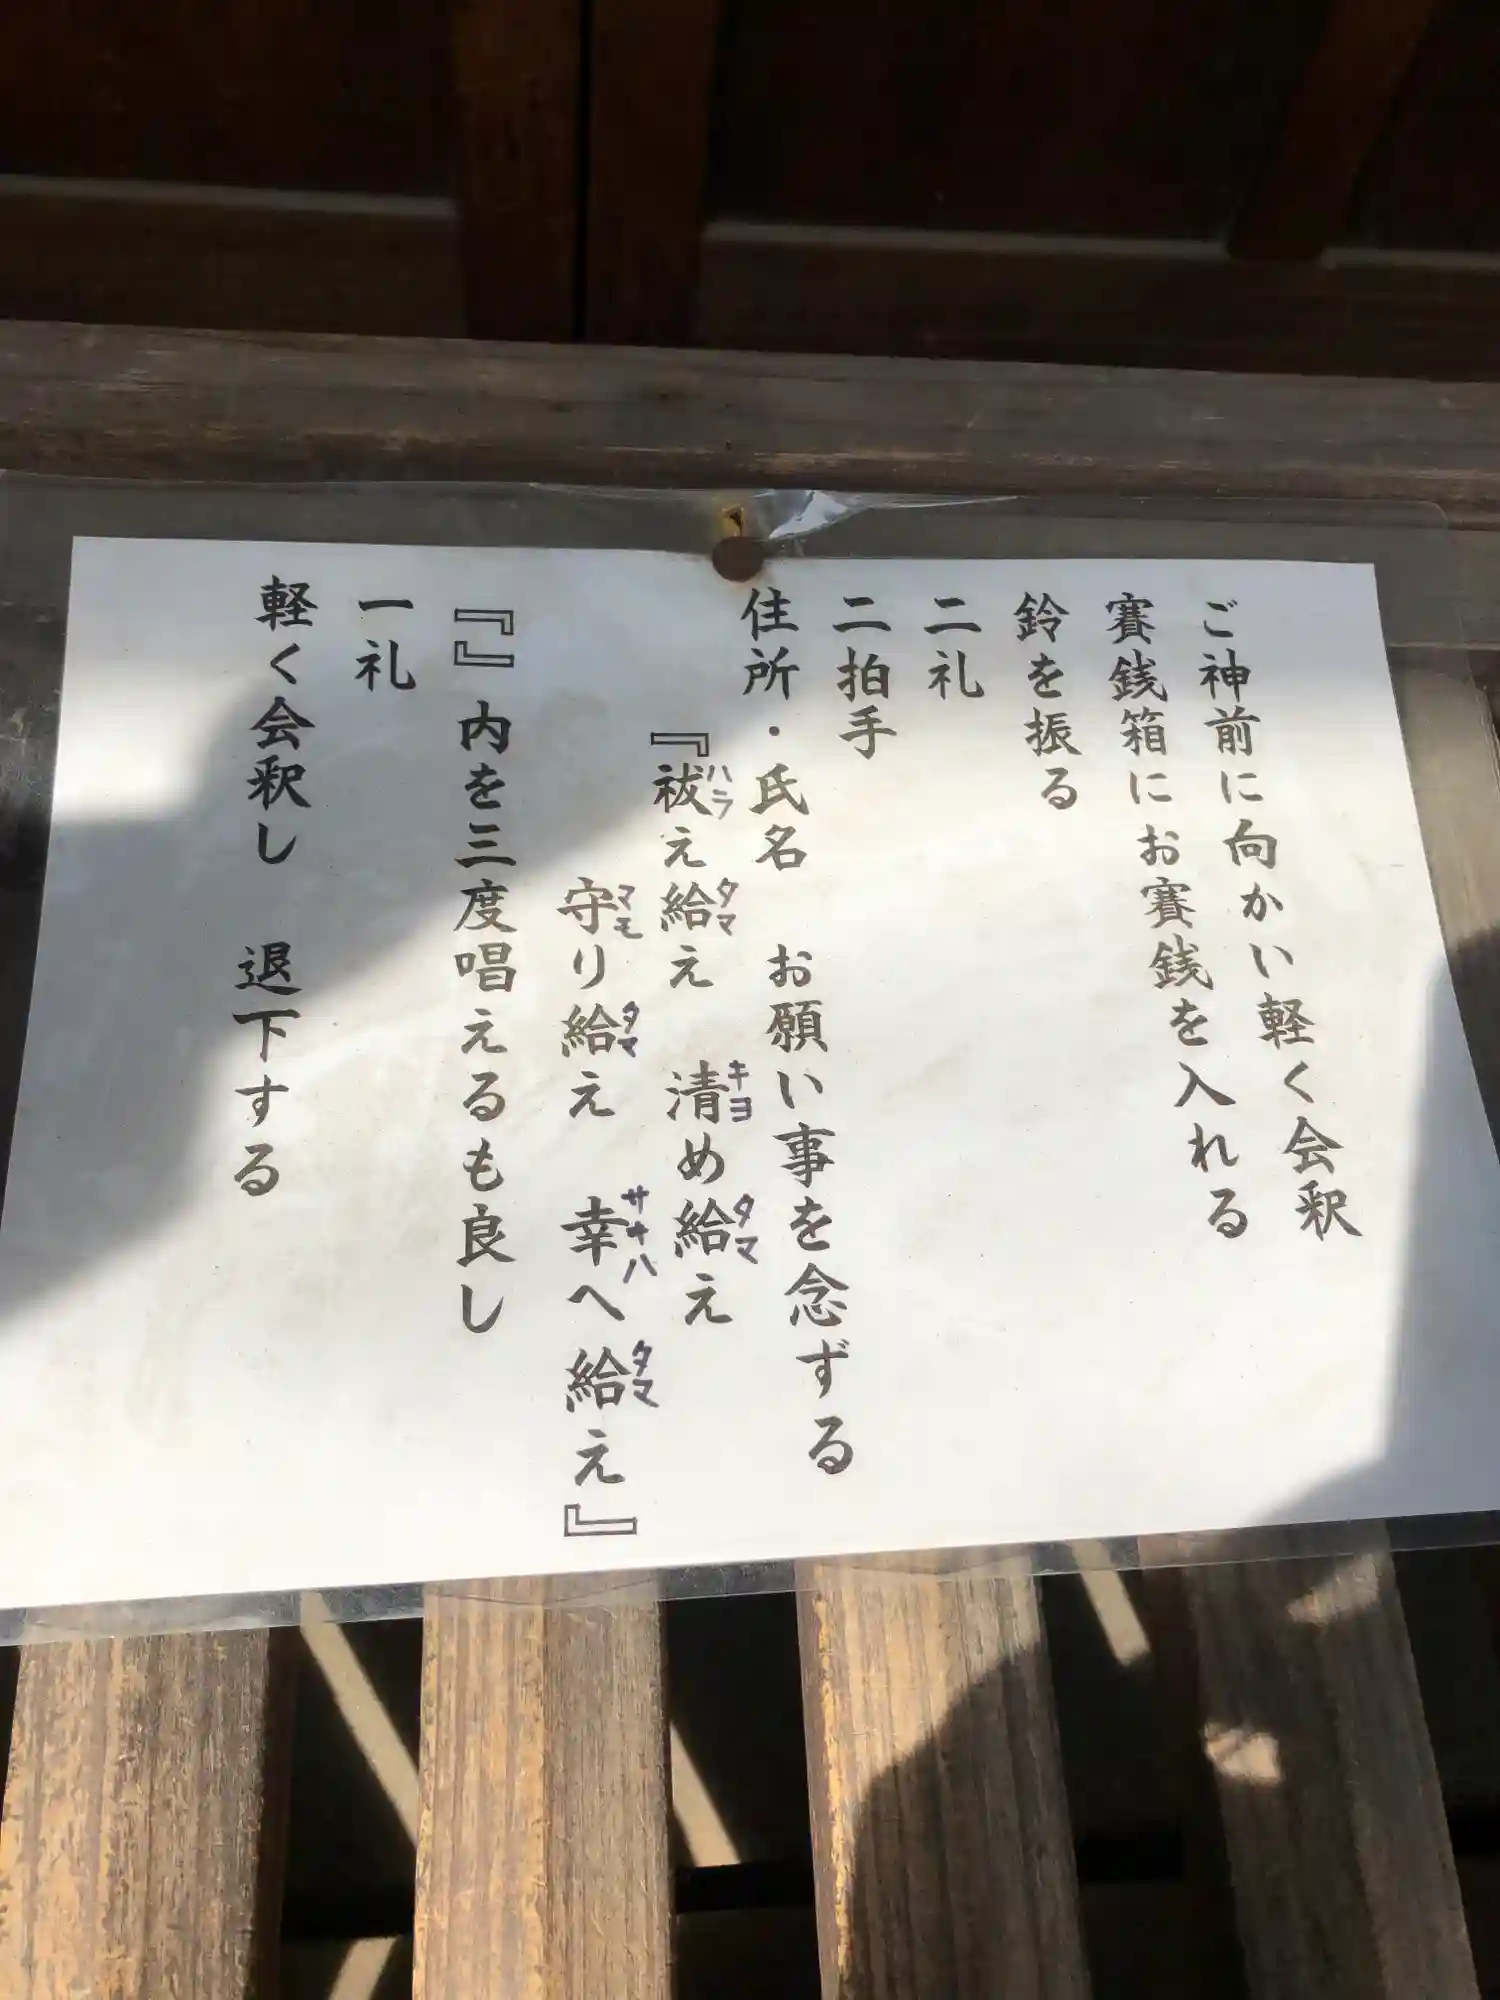 ご神前に向かい軽く会釈
賽銭箱にお賽銭を入れる
鈴を振る
二礼
二拍手
住所・氏名 お願い事を念ずる
『祓え給え 清め給え
ハラ タマ キヨ タマ
守り給え 幸へ給え』
マモ タマ サキハ タマ
『』内を三度唱えるも良し
一礼
軽く会釈し 退下する